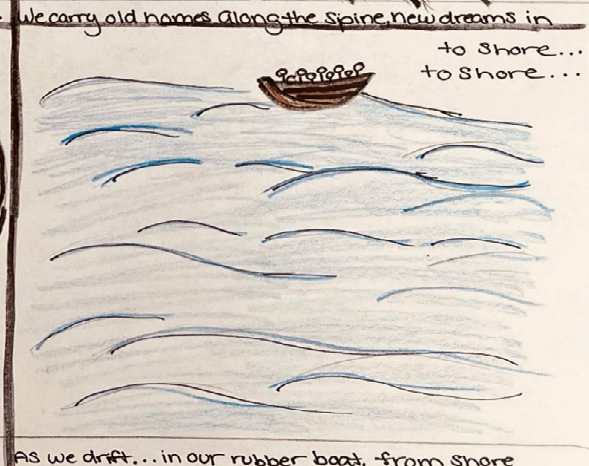 We carry old homes along the spine, new dreams in
to shore...
to shore...
As we drift... in our rubber boat, from shore